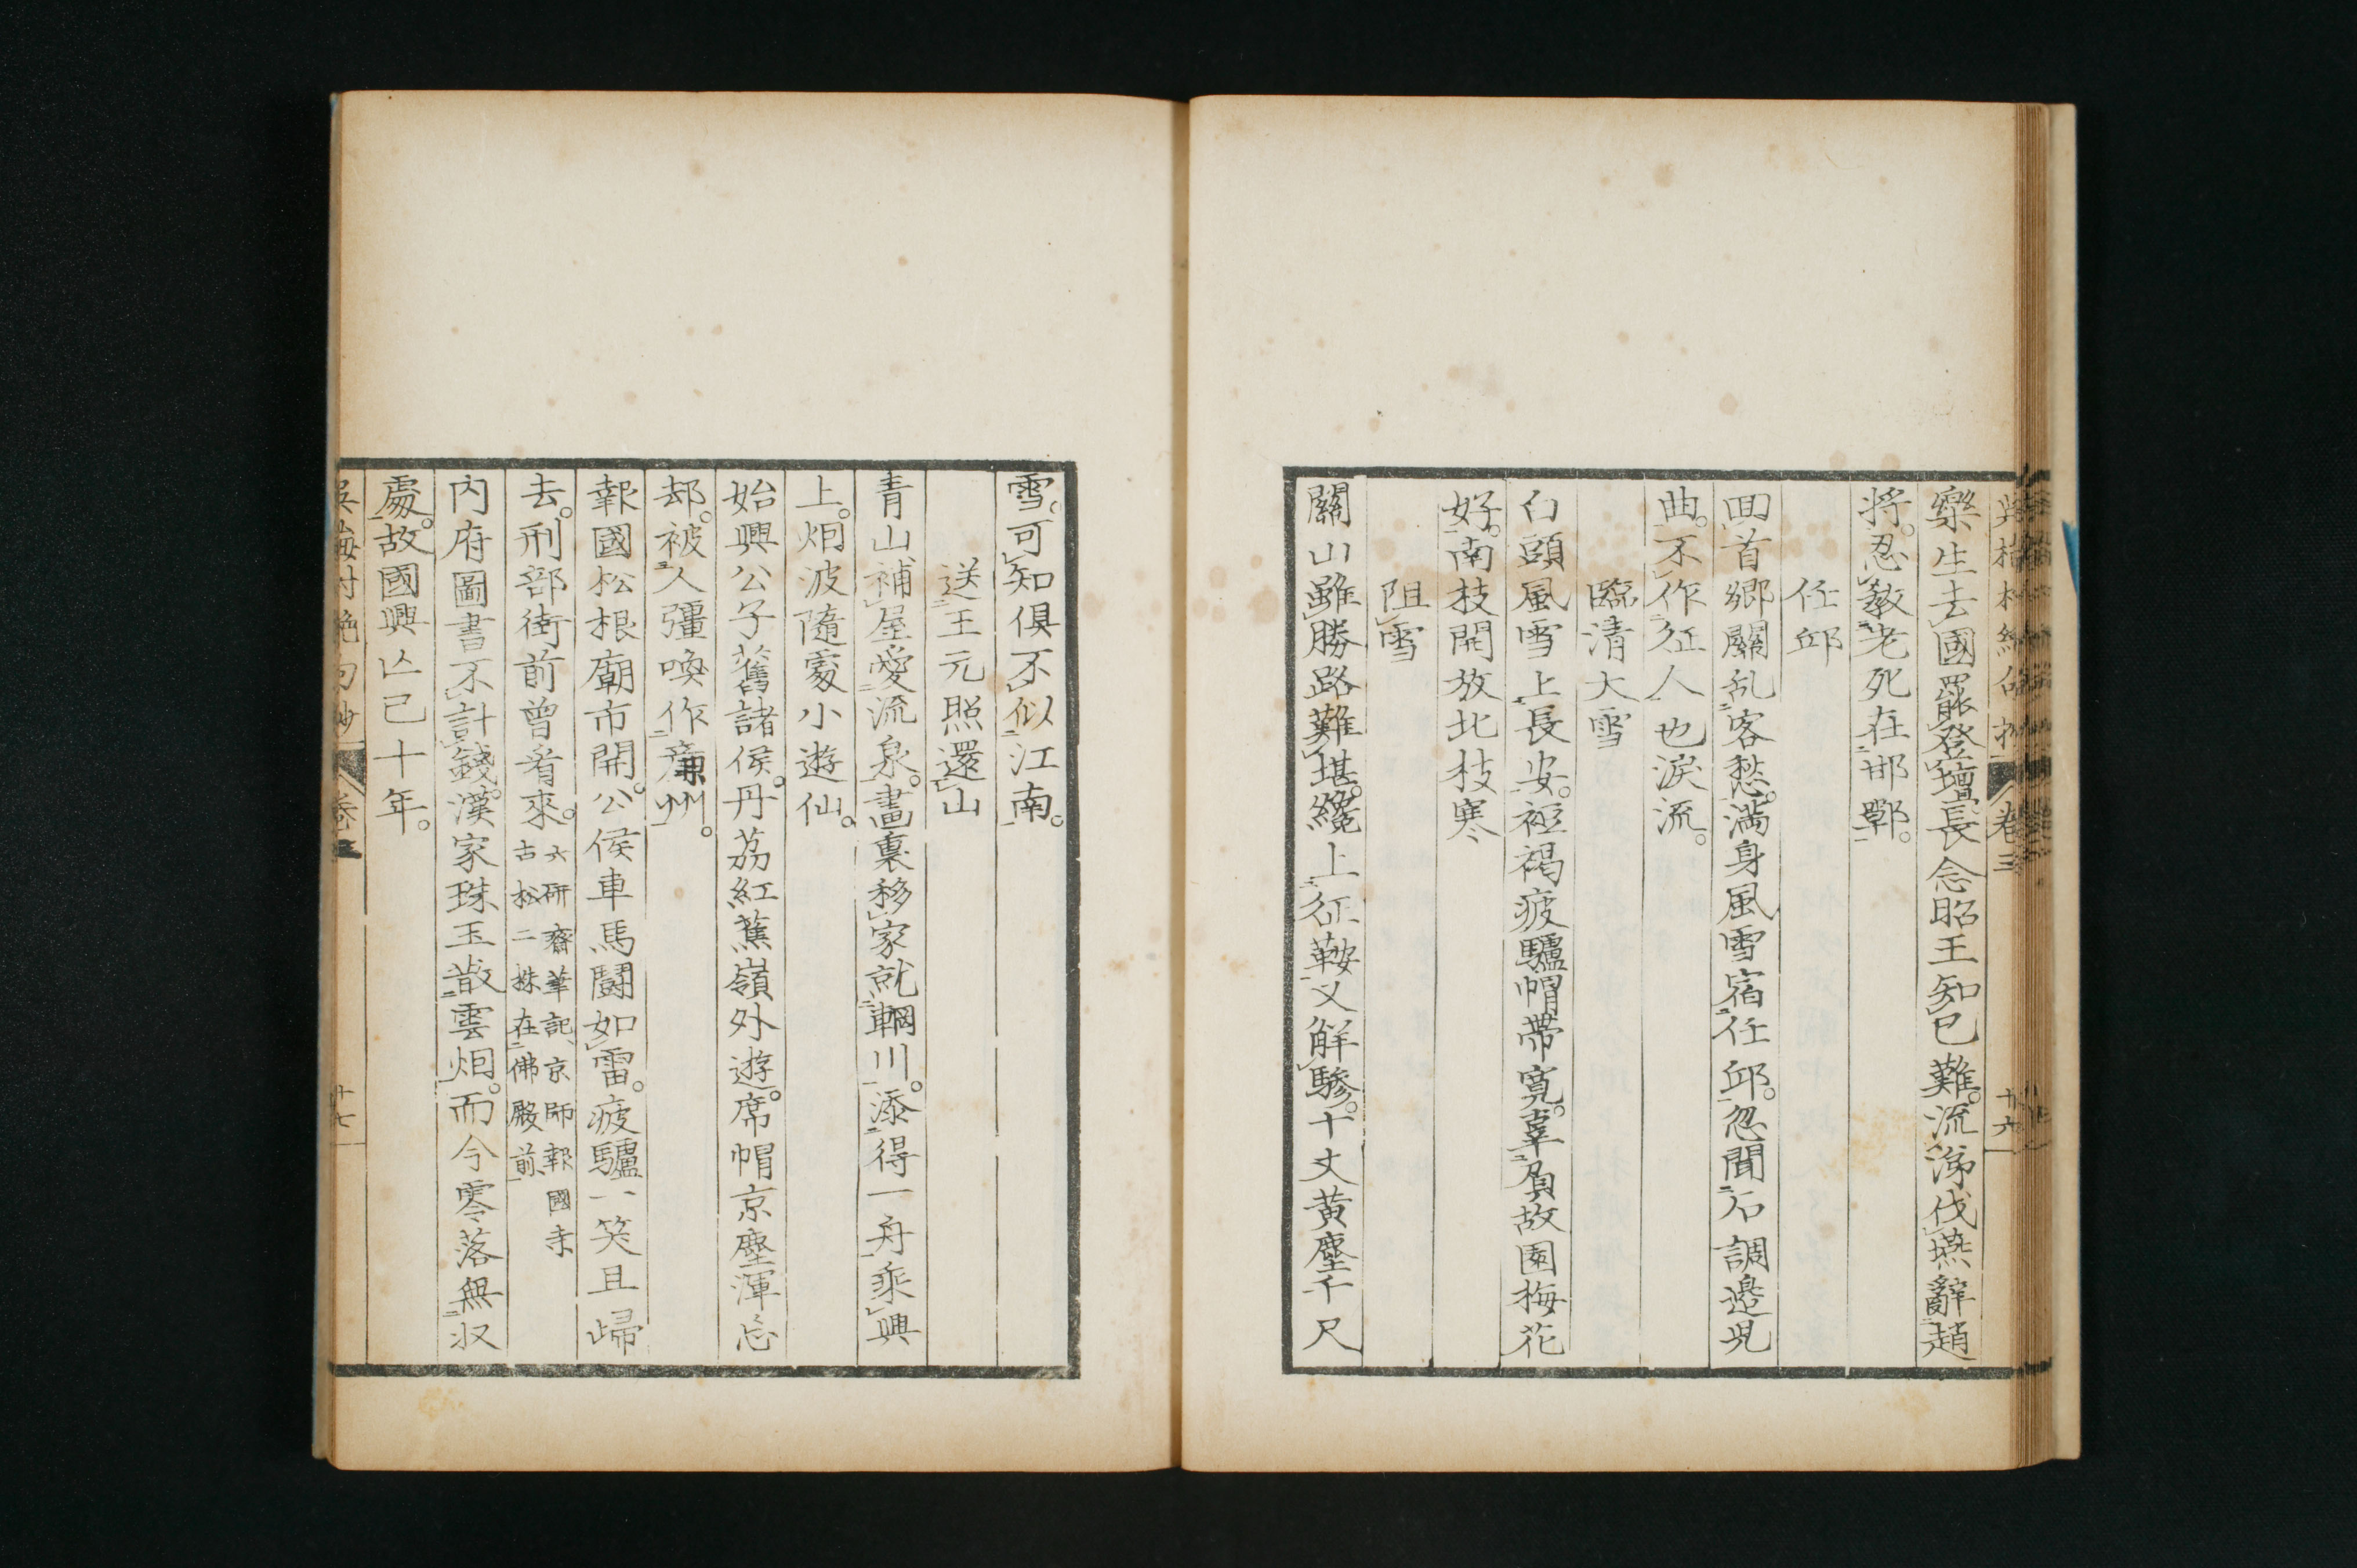 吳梅村絕句抄 卷三 十六
樂生去國罷登壇長念昭王知已難。流涕伐燕辭趙
將。忍教老死在邯鄲。
任邱
回首鄉關乱客愁。滿身風雪宿任邱。忽聞石調邊兒
曲。不作征人也淚流。
臨清大雪
白頭風雪上長安。裋褐疲驢帽帶寬。辜負故園梅花
好。南枝開放北枝寒
阻雪
關山雖勝路難堪。纔上征鞍又解驂。十丈黃塵千尺
雪。可知俱不似江南。
送王元照還山
青山補屋愛流泉。畫裏移家就輞川。添得一舟乘興
上。烟波隨處小遊仙。
始興公子舊諸侯。丹荔紅蕉嶺外遊。席帽京塵渾忘
却。被人彊喚作廉州。
報國松根廟市開。公侯車馬鬪如雷。疲驢一笑且歸
去。刑部街前曾看來。六研齋筆記、京師報國寺古松二株在佛殿前
內府圖書不計錢。漢家珠玉散雲烟。而今零落無収
處。故國興亾已十年。
吳梅村絕句抄 卷三 十七